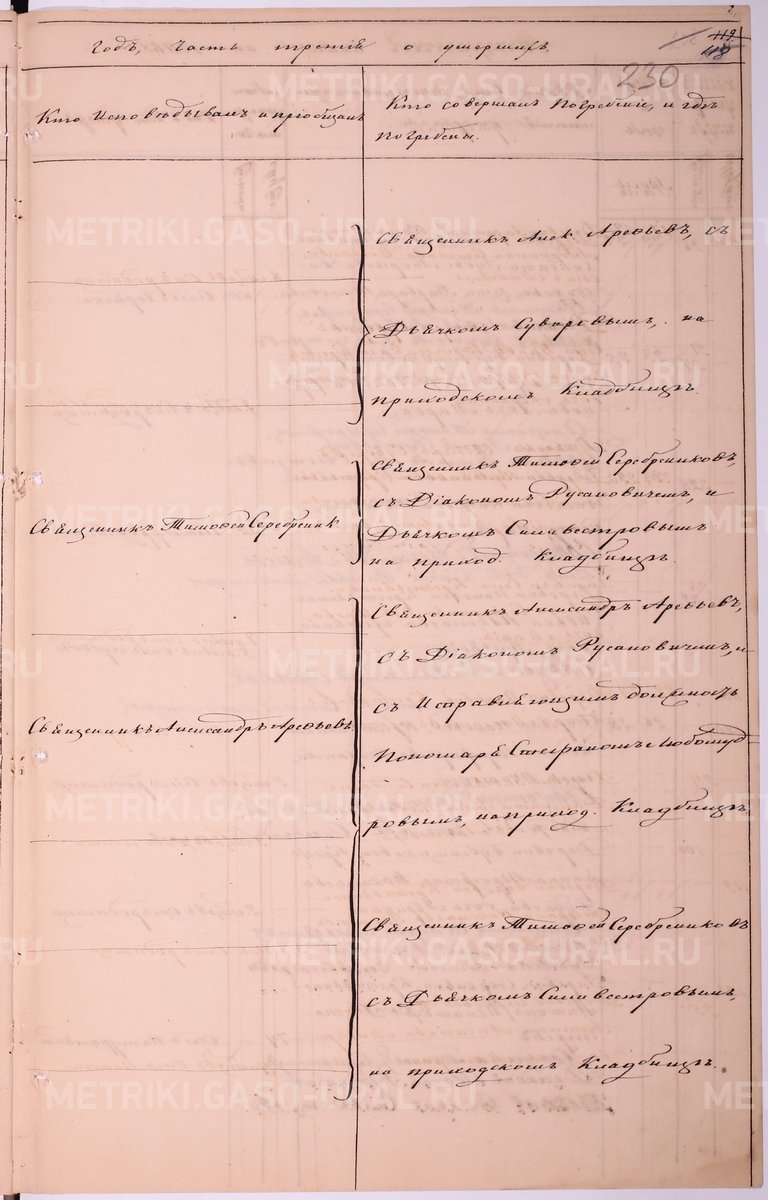 119.
118
230
Годъ, часть третiя о умершихъ.
Кто Исповѣдывалъ и прiобщалъ
Кто совершалъ Погребенiе, и гдѣ
погребены.
Священникъ Алек. Арефьевъ, съ
Дьячкомъ Суворовымъ, на
приходскомъ Кладбищѣ.
Священникъ Тимофей Серебреник.
Священникъ Тимофей Серебрениковъ,
съ Дiакономъ Русановичемъ, и
Дьячкомъ Сильвестровымъ
на приход. Кладбищѣ.
Священникъ Александръ Арефьевъ.
Священникъ Александръ Арефьевъ,
съ Дiакономъ Русановичемъ, и
съ Исправляющимъ должность
Пономаря Стефаномъ Любомуд-
ровымъ, на приход. Кладбищѣ
Священникъ Тимофей Серебрениковъ
съ Дьячкомъ Сильвестровымъ,
на приходскомъ Кладбищѣ.
METRIKI.GASO-URAL.RU